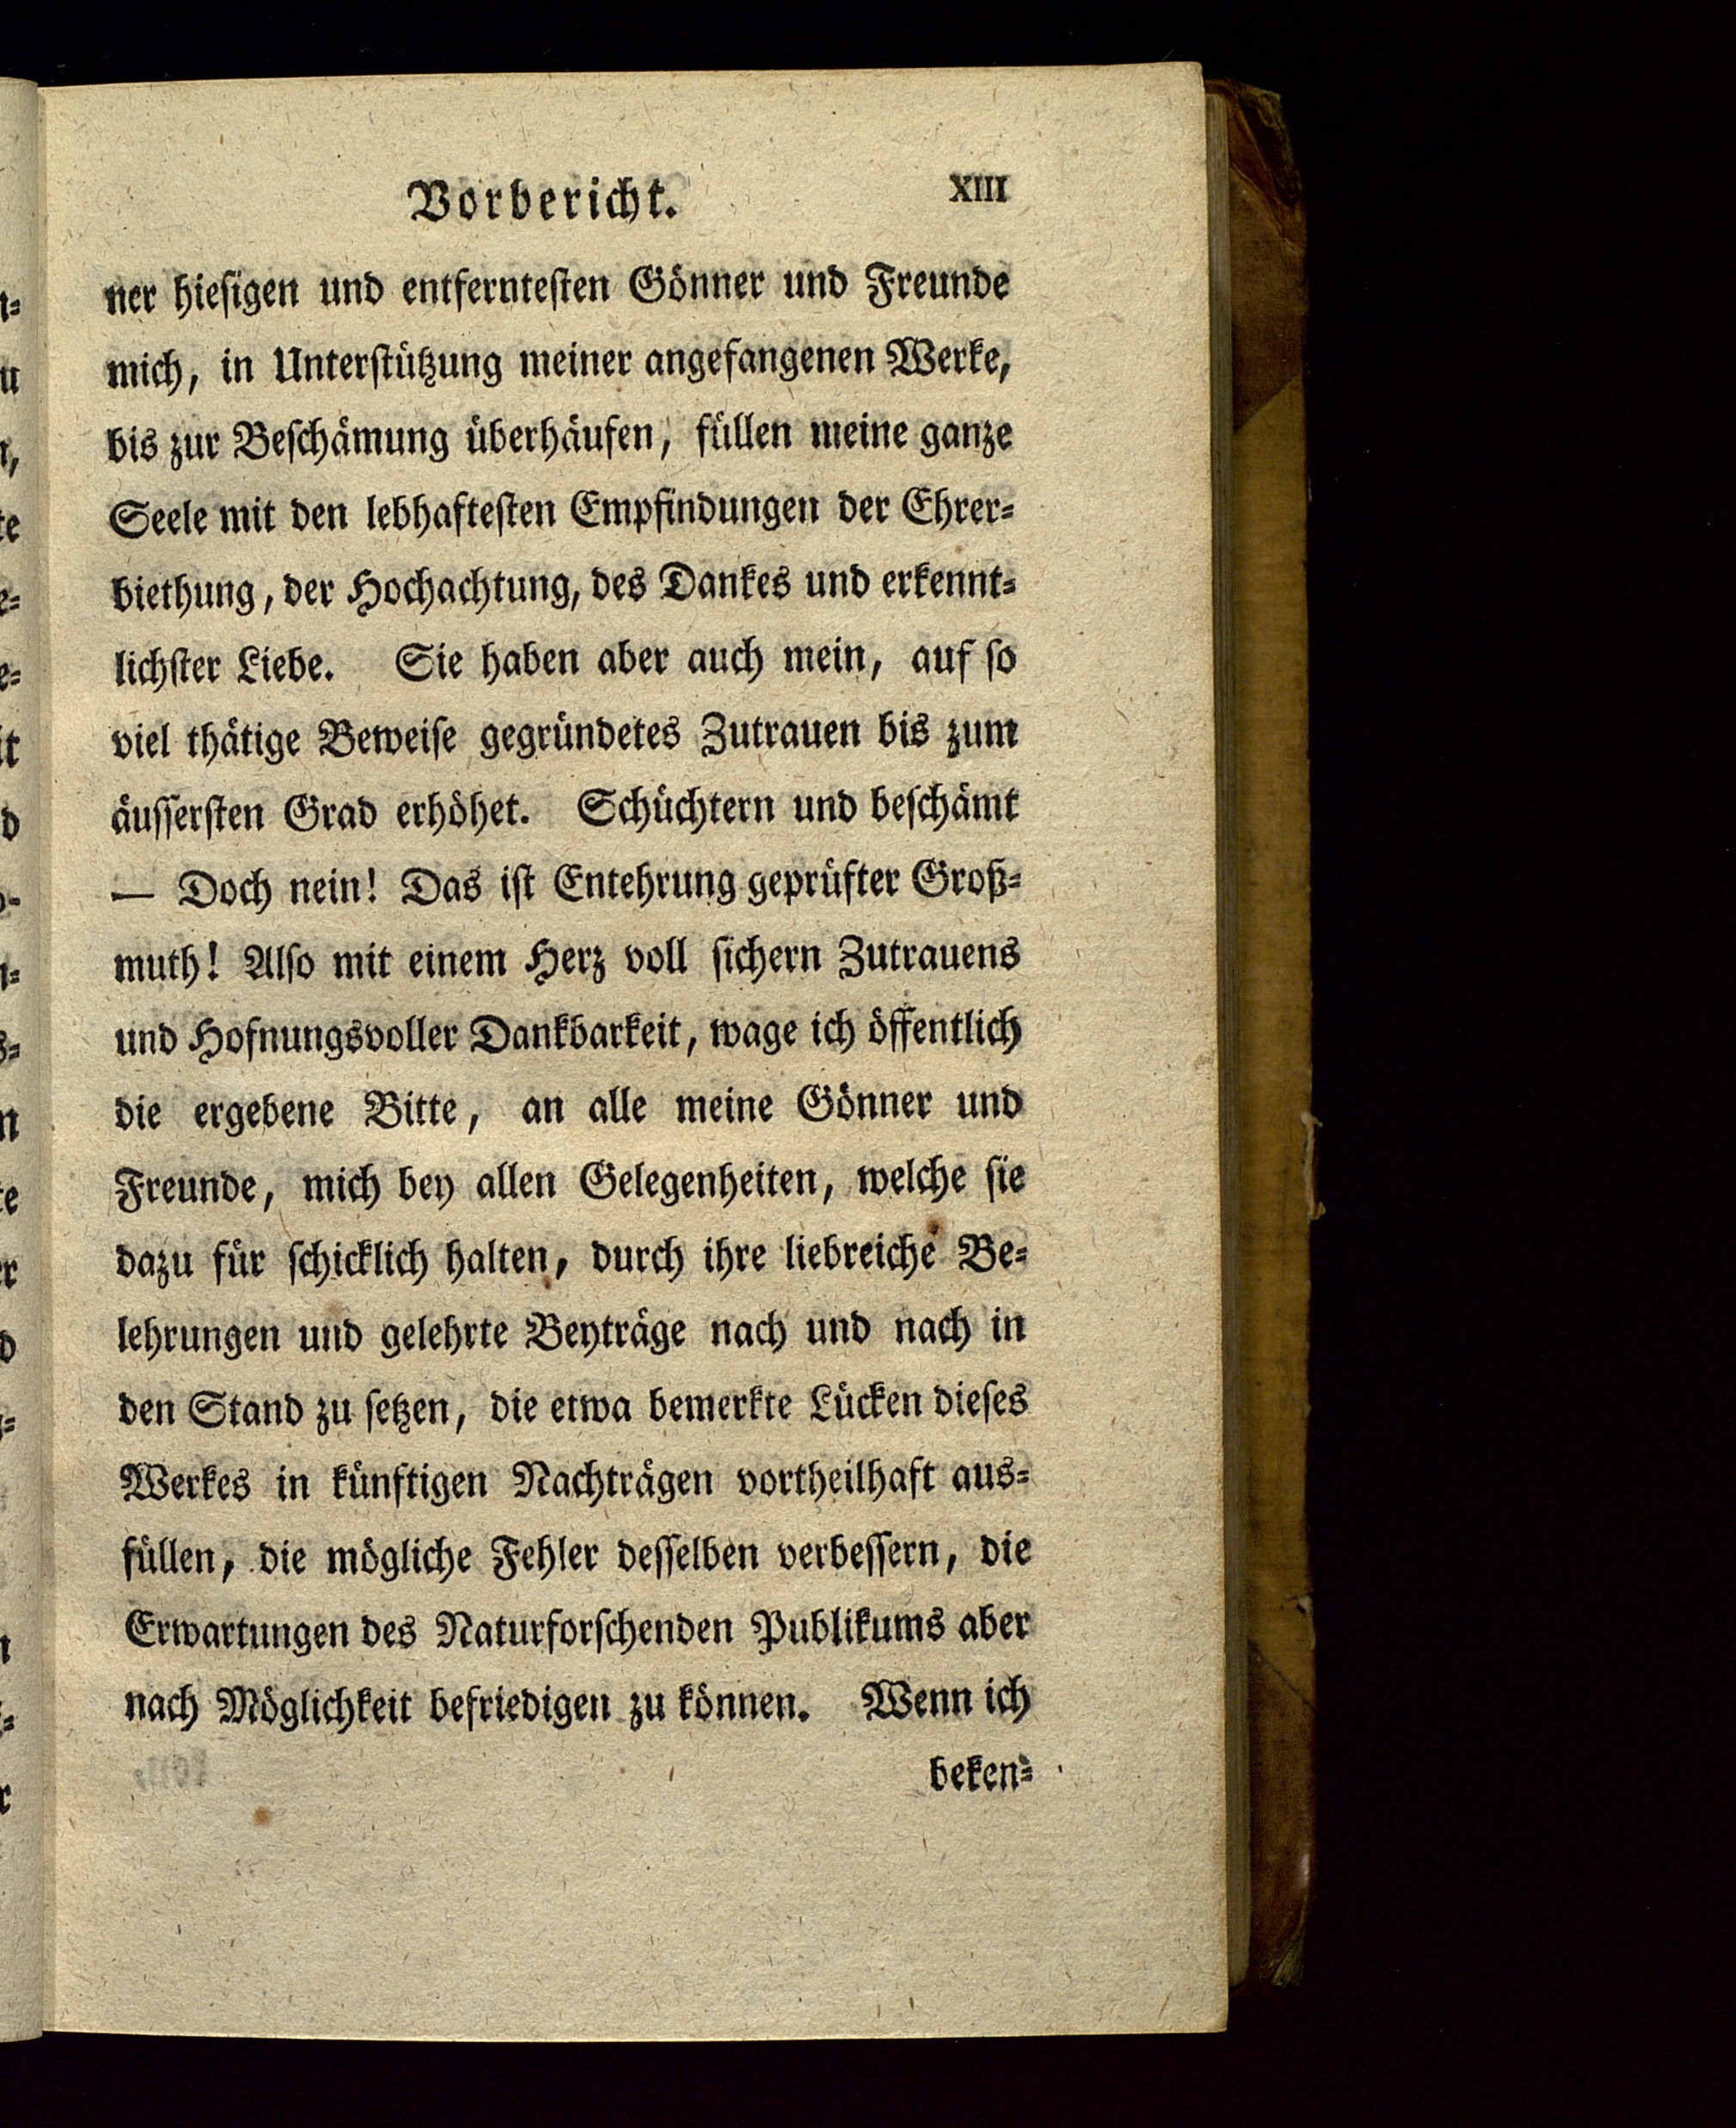 Vorbericht. XIII
ner hieſigen und entfernteſten Gönner und Freunde
mich, in Unterſtützung meiner angefangenen Werke,
bis zur Beſchämung überhäufen, füllen meine ganze
Seele mit den lebhafteſten Empfindungen der Ehrer⸗
biethung, der Hochachtung, des Dankes und erkennt⸗
lichſter Liebe. Sie haben aber auch mein, auf ſo
viel thätige Beweiſe gegründetes Zutrauen bis zum
äuſſerſten Grad erhöhet. Schüchtern und beſchämt
— Doch nein! Das iſt Entehrung geprüfter Groß⸗
muth! Alſo mit einem Herz voll ſichern Zutrauens
und Hofnungsvoller Dankbarkeit, wage ich öffentlich
die ergebene Bitte, an alle meine Gönner und
Freunde, mich bey allen Gelegenheiten, welche ſie
dazu für ſchicklich halten, durch ihre liebreiche Be⸗
lehrungen und gelehrte Beyträge nach und nach in
den Stand zu ſetzen, die etwa bemerkte Lücken dieſes
Werkes in künftigen Nachträgen vortheilhaft aus⸗
füllen, die mögliche Fehler deſſelben verbeſſern, die
Erwartungen des Naturforſchenden Publikums aber
nach Möglichkeit befriedigen zu können. Wenn ich
beken⸗